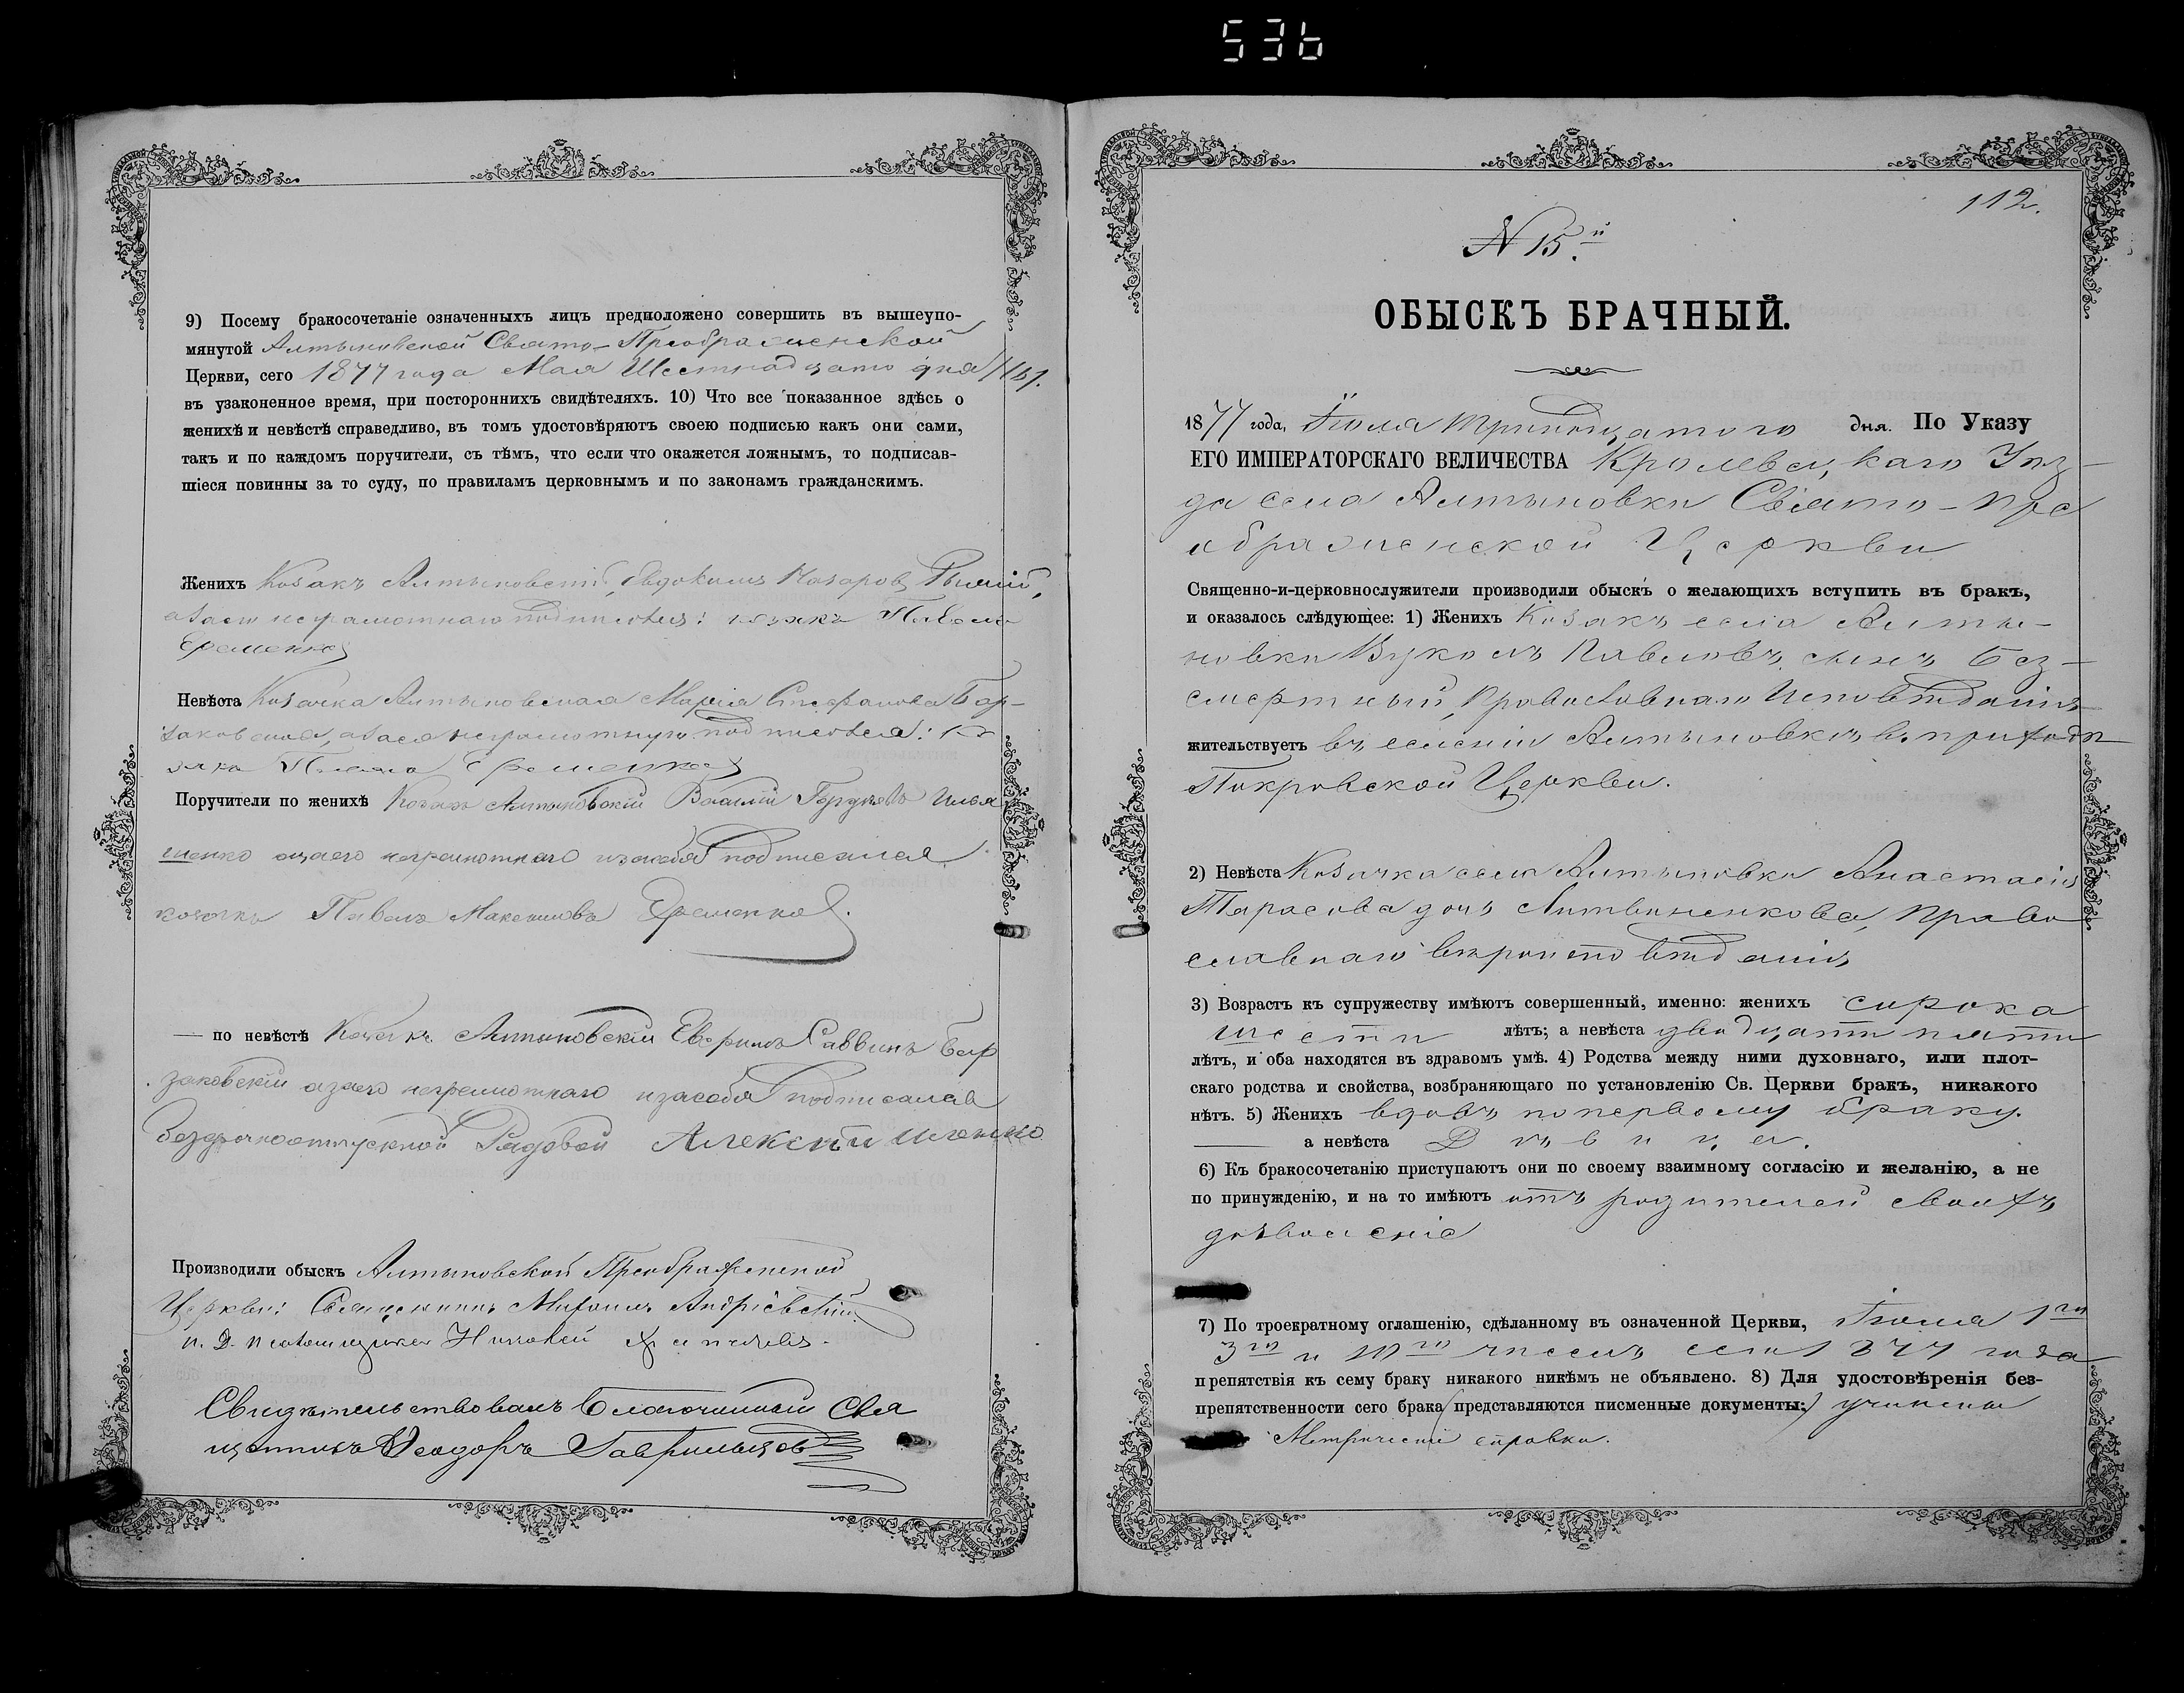 536
9) Посему бракосочетаніе означенныхъ лицъ предположено совершить въ вышеупо-
мянутой Алтыновской Свято-Преображенской
Церкви, сего 1877 года Мая Шестнадцато дня /16/.
въ узаконенное время, при постороннихъ свидѣтеляхъ. 10) Что все показанное здѣсь о
женихѣ и невѣстѣ справедливо, въ томъ удостовѣряютъ своею подписью какъ они сами,
такъ и по каждомъ поручители, съ тѣмъ, что если что окажется ложнымъ, то подписав-
шіеся повинны за то суду, по правиламъ церковнымъ и по законамъ гражданскимъ.
Женихъ Козакъ Алтыновскій, Евдокимъ Назаровъ
неграмотнаго козакъ Павелъ
Еременко
Невѣста Козачка Алтыновская Марія Стефанова Бор-
заковская, азаея неграмотную подписался: ко-
закъ Павелъ Еременко
Поручители по женихѣ Козакъ Алтыновскій Василій Илья
шенко азаего неграмотнаго изасебя подписался
козакъ Павелъ Максимовъ Еременко.
— по невѣстѣ Козакъ Алтыновскій Саввинъ Бор
заковскій азаего неграмотнаго изасебя подписался
безсрочноотпускной Рядовой Алексѣй
Производили обыскъ Алтыновской Преображенской
Церкви: Священникъ Михаилъ Андріевскій
и. д. псаломщика Николай
Свидѣтельствовалъ Благочинный Свя
щенникъ Ѳеодоръ Гаврильцовъ
112.
N 15й.
ОБЫСКЪ БРАЧНЫЙ.
1877 года, Іюля тринадцатого дня. По Указу
ЕГО ИМПЕРАТОРСКАГО ВЕЛИЧЕСТВА Кролевецкаго Уѣз-
да села Алтыновки Свято-Пре
ображенской Церкви
Священно-и-церковнослужители производили обыскъ о желающихъ вступить въ бракъ,
и оказалось слѣдующее: 1) Женихъ Козакъ села Алты-
новки Вуколъ Павловъ сынъ Без-
смертный, Православнаго Исповѣданія
жительствуетъ въ селеніи Алтыновкѣ въ приходѣ
Покровской Церкви.
2) Невѣста Козачка села Алтыновки Анастасія
Тарасова дочь Литвиненкова, Право
славнаго вѣроисповѣданія
3) Возрастъ къ супружеству имѣютъ совершенный, именно: женихъ сорока
шести лѣтъ; а невѣста двадцати пяти
лѣтъ, и оба находятся въ здравомъ умѣ. 4) Родства между ними духовнаго, или плот-
скаго родства и свойства, возбраняющаго по установленію Св. Церкви бракъ, никакого
нѣтъ. 5) Женихъ вдовъ поперваму браку.
а невѣста Дѣвица.
6) Къ бракосочетанію приступаютъ они по своему взаимному согласію и желанію, а не
по принужденію, и на то имѣютъ отъ родителей своихъ
дозволеніе
7) По троекратному оглашенію, сдѣланному въ означенной Церкви, Іюля 1го
3го и 10го числъ сего 1877 года
препятствія къ сему браку никакого никѣмъ не объявлено. 8) Для удостовѣренія без-
препятственности сего брака (представляются писменные документы:) учинены
Метрическія справки.